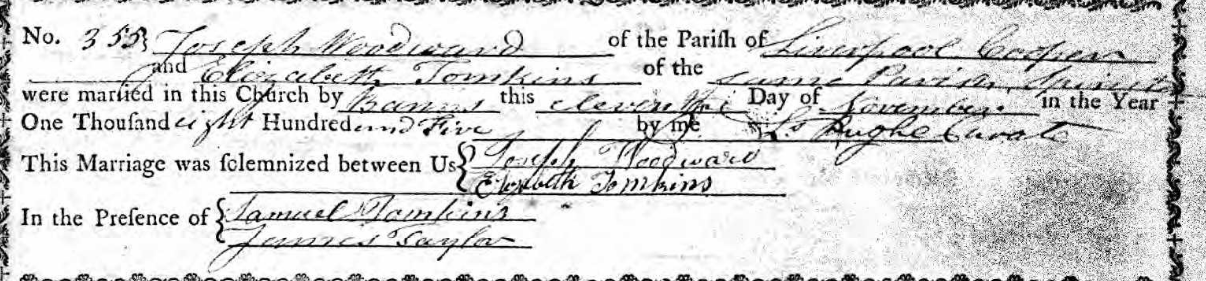 No. 355 } Joseph Woodward of the Pariſh of Liverpool Cooper
and Elizabeth Tomkins of the same Parish Spinster
were married in this Church by Banns this eleventh Day of November in the Year
One Thouſand eight Hundred and Five by me Pughe Curate
This Marriage was ſolemnized between Us { Joseph Woodward
Elizabeth Tomkins
In the Preſence of { Samuel Tomkins
James Taylor